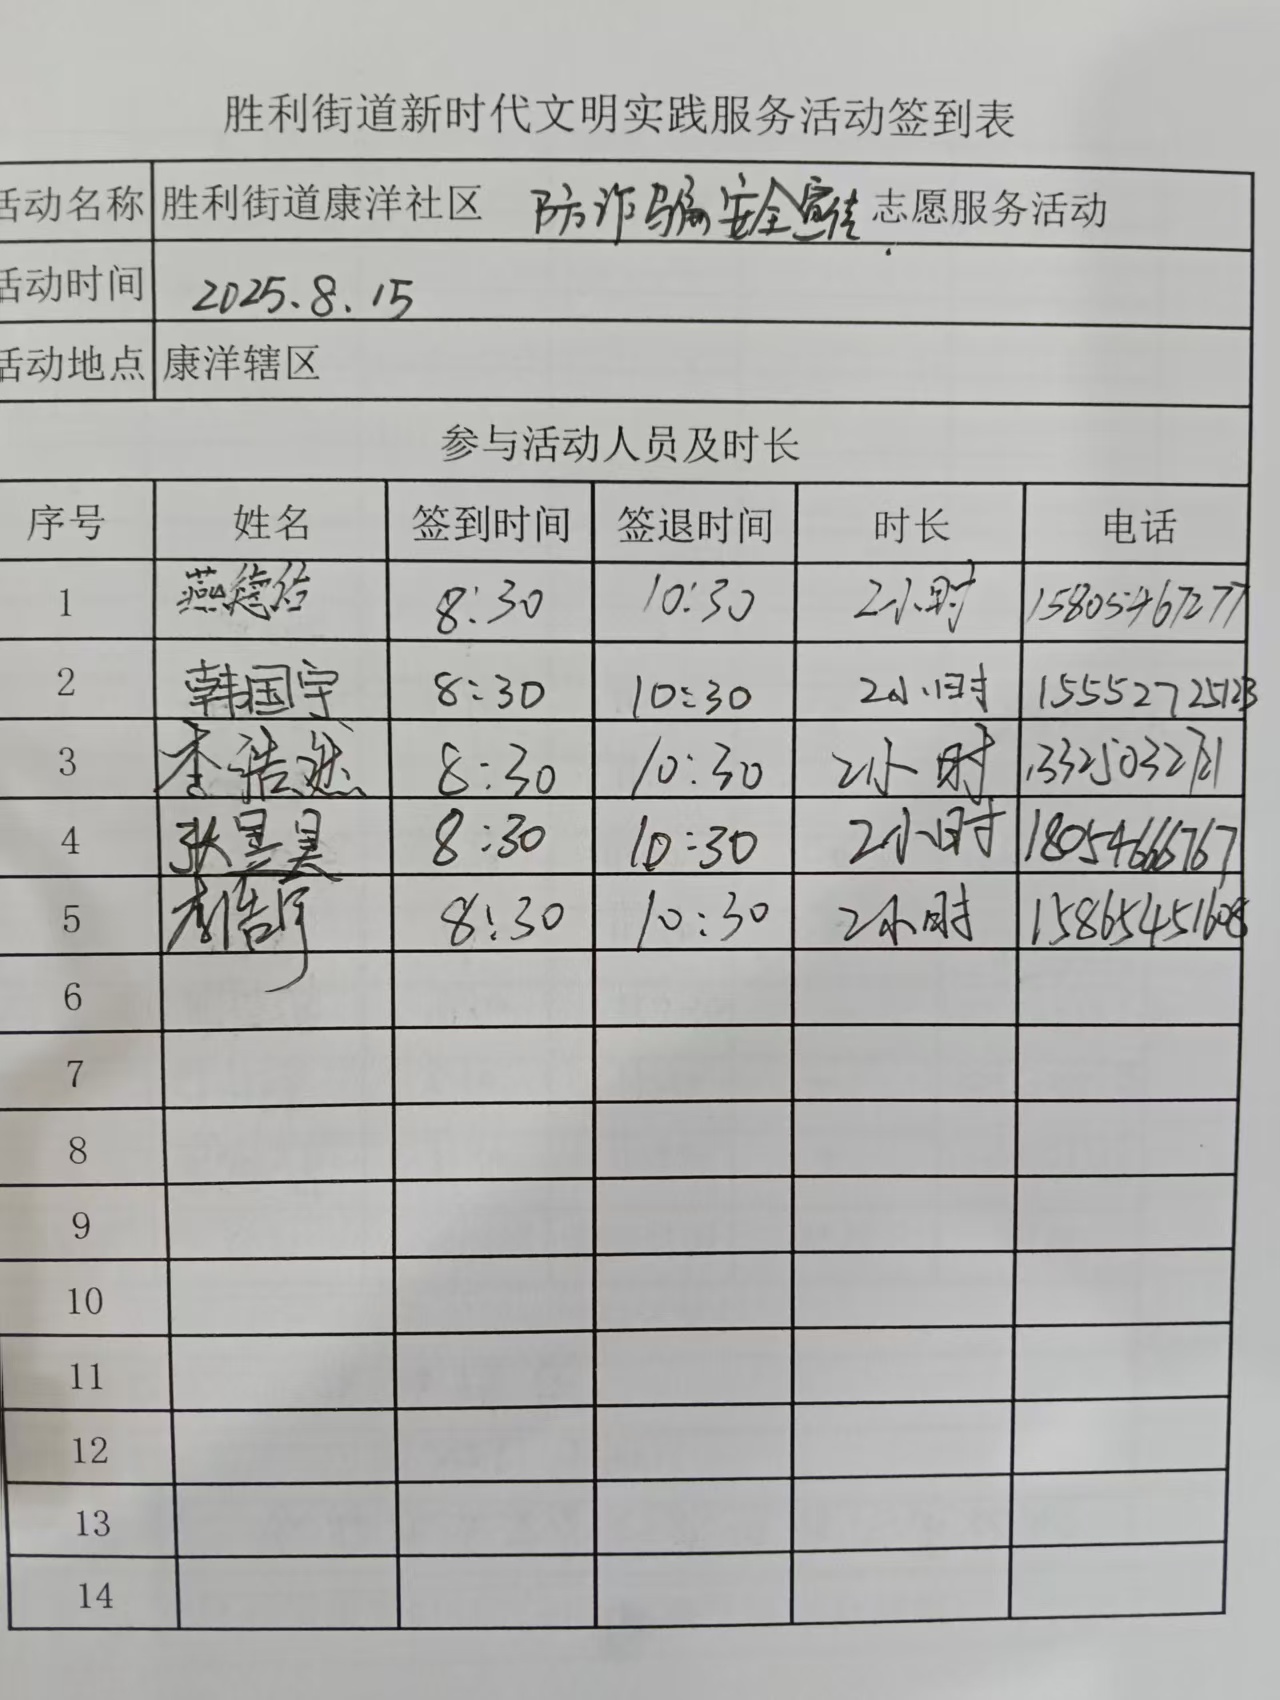 胜利街道新时代文明实践服务活动签到表
活动名称 胜利街道康洋社区 防诈骗安全宣传 志愿服务活动
活动时间 2025.8.15
活动地点 康洋辖区
参与活动人员及时长
序号 姓名 签到时间 签退时间 时长 电话
1 燕德佑 8:30 10:30 2小时 15805467277
2 韩国宇 8:30 10:30 2小时 15552725123
3 李浩然 8:30 10:30 2小时
4 张昊昊 8:30 10:30 2小时 18054666767
5 李浩宇 8:30 10:30 2小时 15865451608
6
7
8
9
10
11
12
13
14